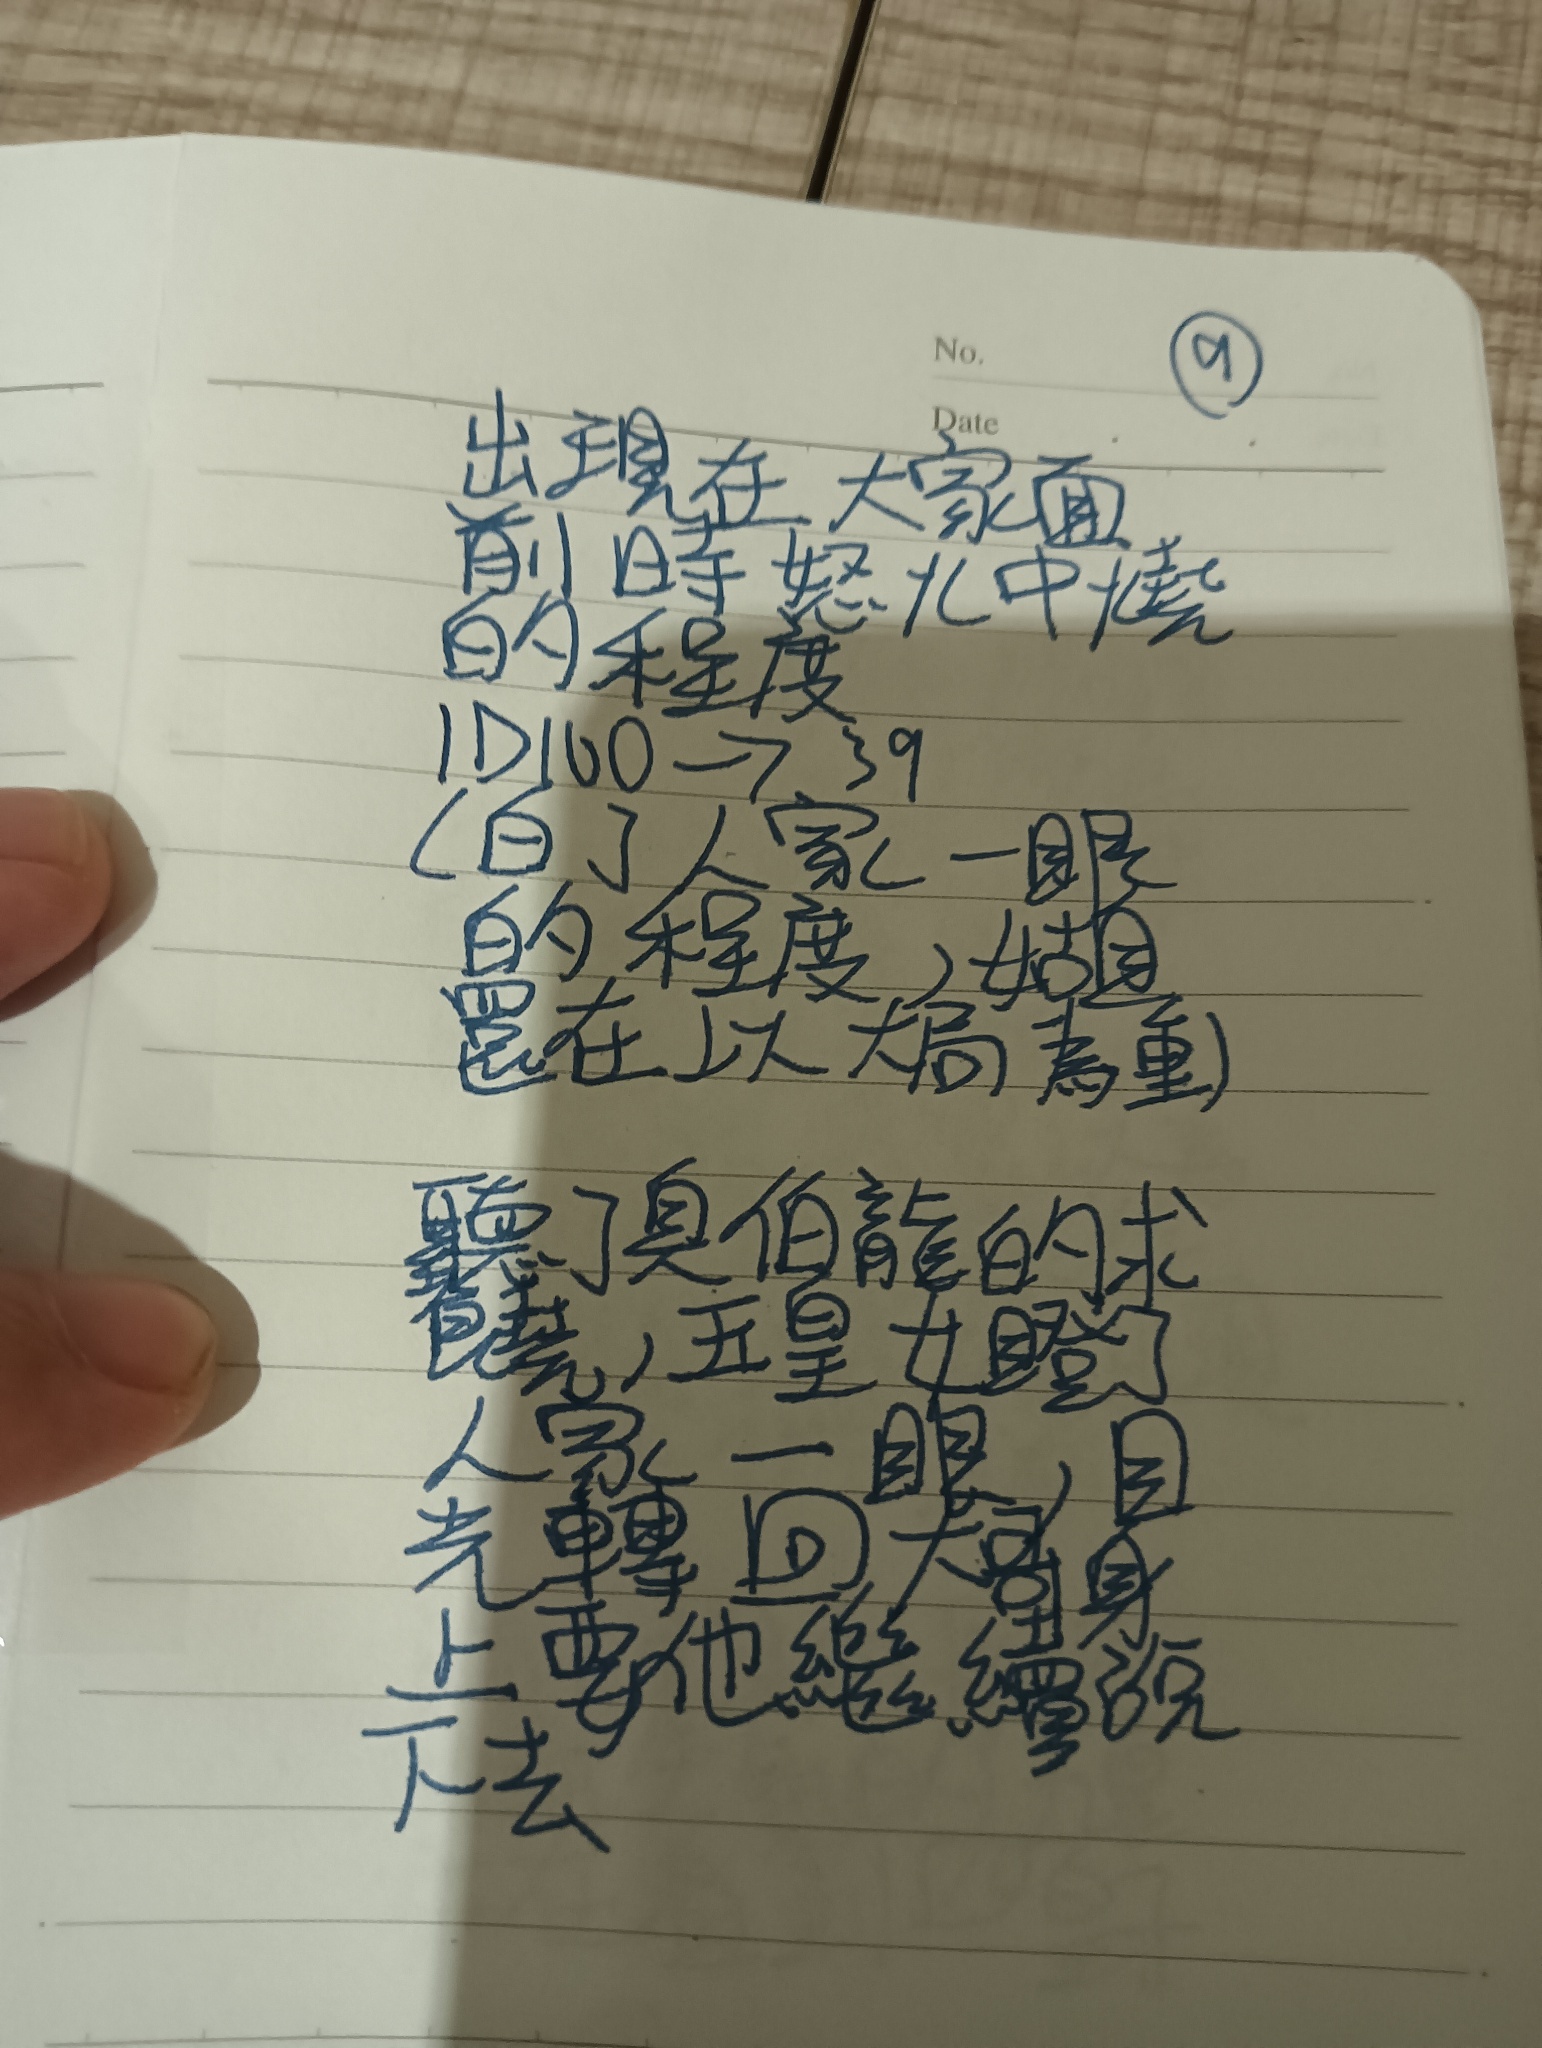 No. 9
Date
出現在大家面
前時怒火中燒
的程度
1D100→39
(白了人家一眼
的程度,姑且
還在以大局為重)
聽了臭伯龍的求
饒,五皇女瞪了
人家一眼,目
光轉回大哥身
上要他繼續說
下去